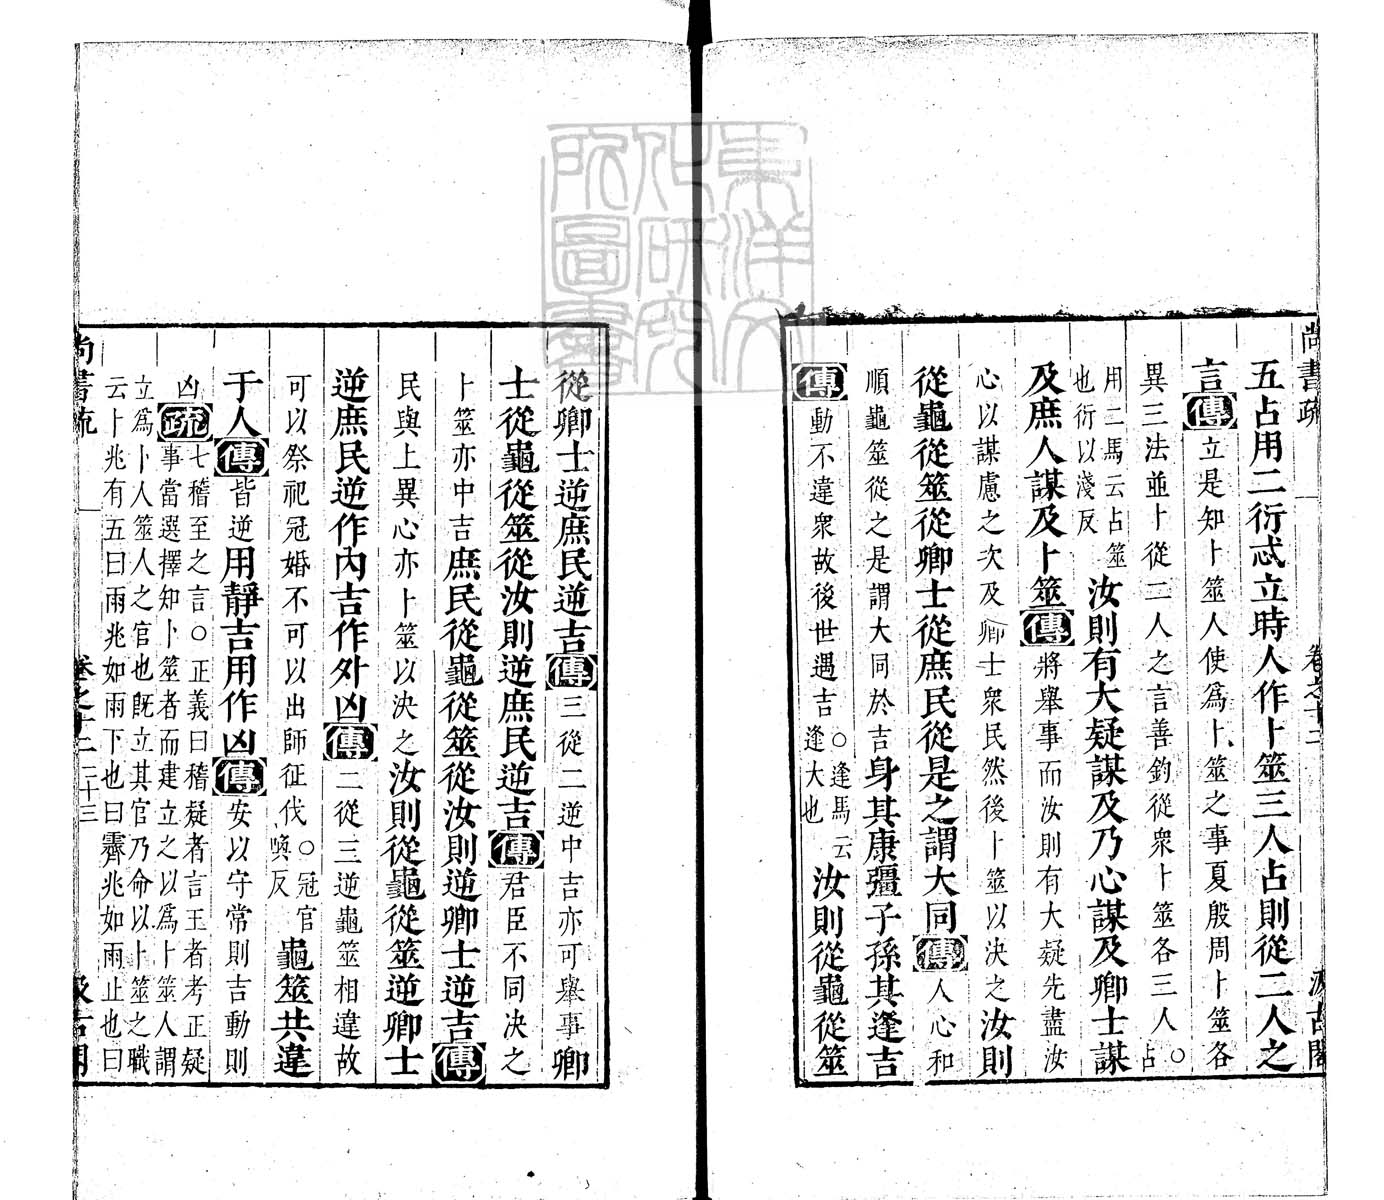 尚書疏 卷之十二 汲古閣
五占用二衍忒立時人作卜筮三人占則從二人之
言傳立是知卜筮人使爲卜筮之事夏殷周卜筮各
異三法並卜從二人之言善鈞從衆卜筮各三人○占
用二馬云占筮也衍以淺反汝則有大疑謀及乃心謀及卿士謀
及庶人謀及卜筮傳將舉事而汝則有大疑先盡汝
心以謀慮之次及卿士衆民然後卜筮以決之汝則
從龜從筮從卿士從庶民從是之謂大同傳人心和
順龜筮從之是謂大同於吉身其康彊子孫其逢吉
傳動不違衆故後世遇吉○逢馬云逢大也汝則從龜從筮
從卿士逆庶民逆吉傳三從二逆中吉亦可舉事卿
士從龜從筮從汝則逆庶民逆吉傳君臣不同決之
卜筮亦中吉庶民從龜從筮從汝則逆卿士逆吉傳
民與上異心亦卜筮以決之汝則從龜從筮逆卿士
逆庶民逆作內吉作外凶傳二從三逆龜筮相違故
可以祭祀冠婚不可以出師征伐○冠官喚反龜筮共違
于人傳皆逆用靜吉用作凶傳安以守常則吉動則
凶疏七稽至之言○正義曰稽疑者言王者考正疑
事當選擇知卜筮者而建立之以爲卜筮人謂
立爲卜人筮人之官也既立其官乃命以卜筮之職
云卜兆有五曰雨兆如雨下也曰霽兆如雨止也曰
尚書疏 卷之十二 二十三 汲古閣
東洋文化研究所圖書